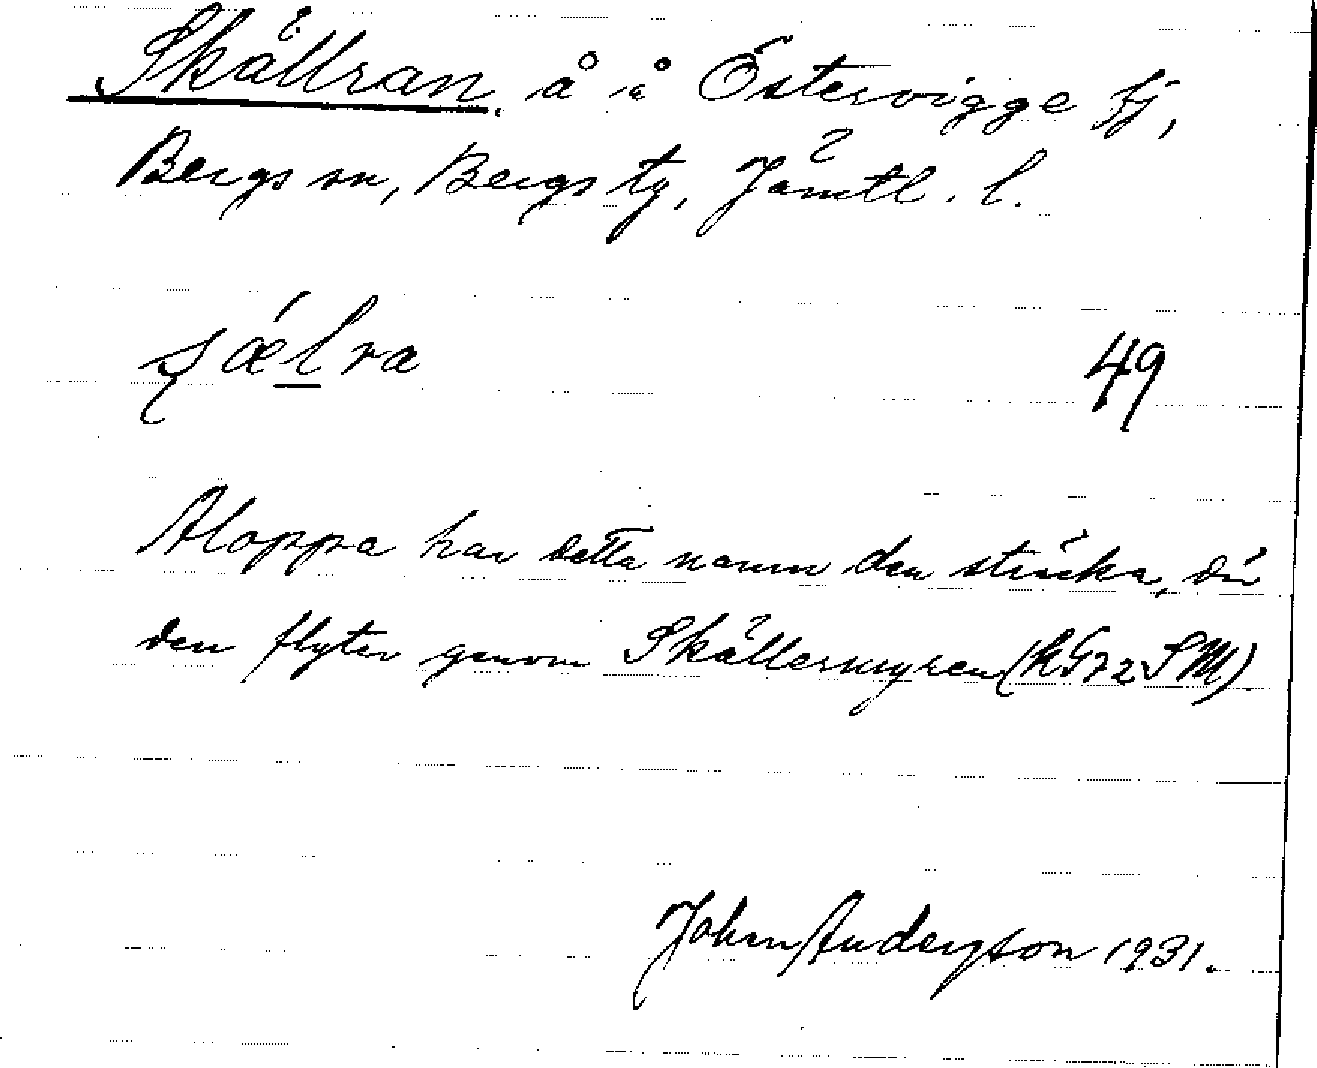 Skällran, å i Östervigge fj,
Bergs sn, Bergs tg, Jämtl. l.
ʂælra 49
Aloppa har detta namn den sträcka, där
den flyter genom Skällermyren
Johan Anderson 1931.